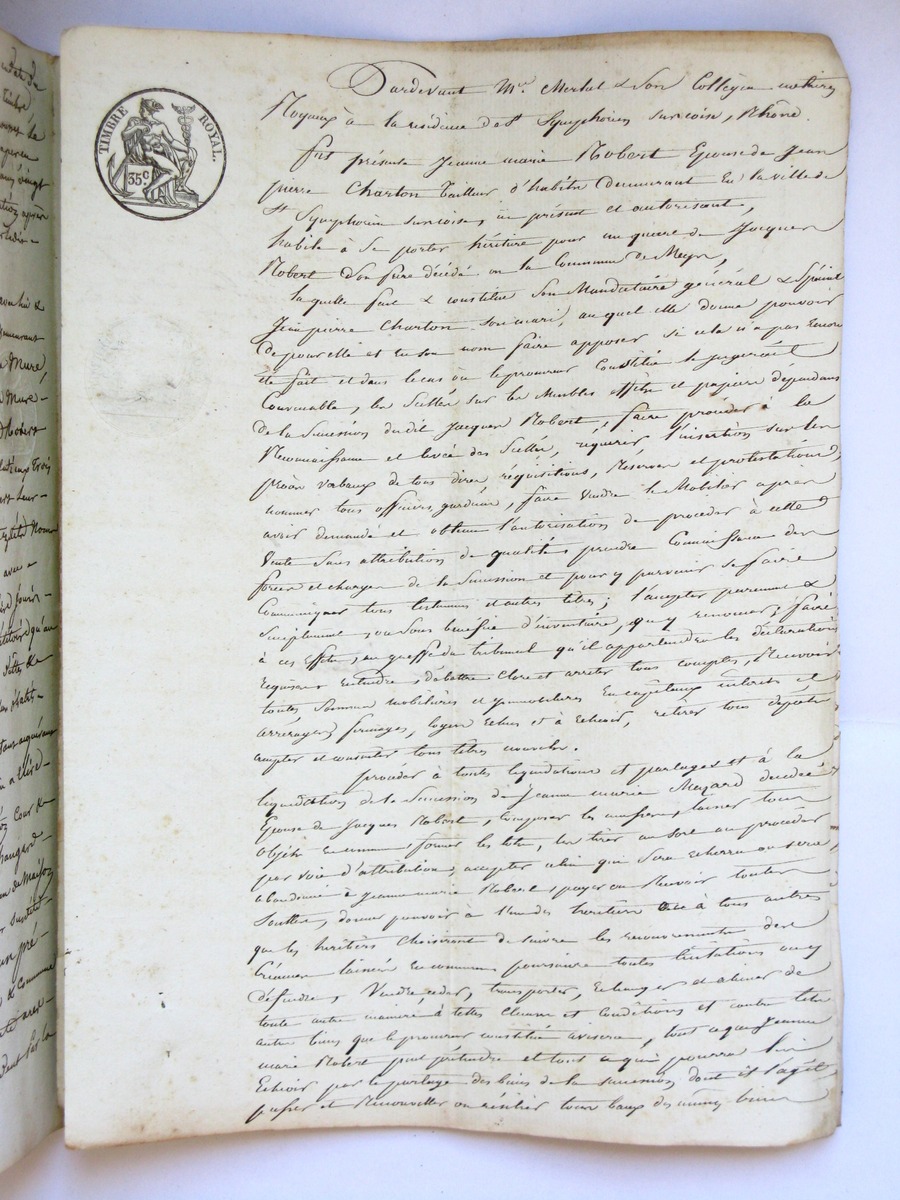 TIMBRE ROYAL.
35 c.
Pardevant Me. Merlat & Son Collègue notaires
Royaux à la résidence de St Symphorien sur coise, Rhône.
fut présente Jeanne marie Robert Epouse de Jean
pierre Charton Tailleur d'habits Demeurant En la ville de
St Symphorien sur coise, ici présent et autorisant,
habile à Se porter héritière pour un quart de Jacques
Robert Son père décédé en la Commune de Meys,
laquelle fait & constitue Son Mandataire général & Spécial
Jean pierre Charton Son mari, auquel elle donne pouvoir
De pour elle et en son nom faire apposer si cela n'a pas Encore
été fait et dans le cas où le procureur Constitué le jugerait
Convenable, les Scellés sur les Meubles effets et papiers dépendans
De la Succession du dit Jacques Robert, faire procéder à la
Reconnaissance et levée des Scellés, requérir l'insertion sur les
procès verbaux de tous dires, réquisitions, Réserves et protestations,
nommer tous officiers, gardiens, faire Vendre le Mobilier après
avoir demandé et obtenu l'autorisation de procéder à cette
Vente Sans attribution de qualités, prendre Connaissance des
forces et charges de la Succession et pour y parvenir se faire
Communiquer tous testamens et autres titres; l'accepter purement &
Simplement, ou Sous bénéfice d'inventaire, ou y renoncer; faire
à ces effets, au greffe du tribunal qu'il appartiendra les déclarations
requises Entendre, débattre Clore et arrêter tous comptes, Recevoir
toutes Sommes mobilières et immobilières En capitaux intérêts et
arrérages, fermages, loyers échus et à échoir, retirer tous dépôts
accepter et consentir tous titres nouvels.
procéder à toutes liquidations et partages et à la
liquidation de la Succession de Jeanne marie Mazard décédée
Epouse de Jacques Robert, Composer les masses, laisser tous
objets En commun, former les lots, les tirer au sort ou procéder
par voie d'attribution, accepter celui qui Sera échu ou sera
abandonné à Jeanne marie Robert, payer ou Recevoir toutes
Soultes, donner pouvoir à l'un des héritiers ou à tous autres
que les héritiers choisiront de suivre les recouvremens des
Créances laissées En commun, poursuivre toutes licitations ou y
défendre, Vendre, céder, transporter, échanger et aliéner de
toute autre manière à telles clauses et conditions et contre tels
autres biens que le procureur constitué avisera, tout ce que Jeanne
marie Robert peut prétendre et tout ce qui pourra lui
Echoir par le partage des biens de la succession dont il s'agit,
passer et Renouveller ou résilier tous baux des mêmes biens